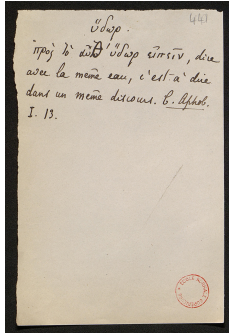 441
ὕδωρ.
πρὸς τὸ αὐτὸ ὕδωρ εἰπεῖν, dire
avec la même eau, c'est-à-dire
dans un même discours. C. Aphob.
I. 13.